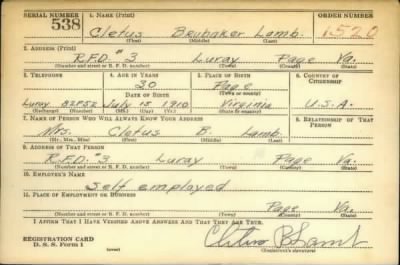 SERIAL NUMBER 1. NAME (Print) ORDER NUMBER
538 Cletus Brubaker Lamb. 1520
(First) (Middle) (Last)
2. ADDRESS (Print)
R.F.D. #3 Luray Page Va.
(Number and street or R. F. D. number) (Town) (County) (State)
3. TELEPHONE 4. AGE IN YEARS 5. PLACE OF BIRTH 6. COUNTRY OF CITIZENSHIP
30 Page
DATE OF BIRTH (Town or county)
Luray July 15 1910 Virginia U.S.A.
(Exchange) (Number) (Mo.) (Day) (Yr.) (State or country)
7. NAME OF PERSON WHO WILL ALWAYS KNOW YOUR ADDRESS 8. RELATIONSHIP OF THAT PERSON
Mrs. Cletus B. Lamb.
(Mr., Mrs., Miss) (First) (Middle) (Last)
9. ADDRESS OF THAT PERSON
R.F.D. #3 Luray Page Va.
(Number and street or R. F. D. number) (Town) (County) (State)
10. EMPLOYER'S NAME
Self employed
11. PLACE OF EMPLOYMENT OR BUSINESS
Page Va.
(Number and street or R. F. D. number) (Town) (County) (State)
I AFFIRM THAT I HAVE VERIFIED ABOVE ANSWERS AND THAT THEY ARE TRUE.
REGISTRATION CARD
D. S. S. Form 1 (over) (Registrant's signature)